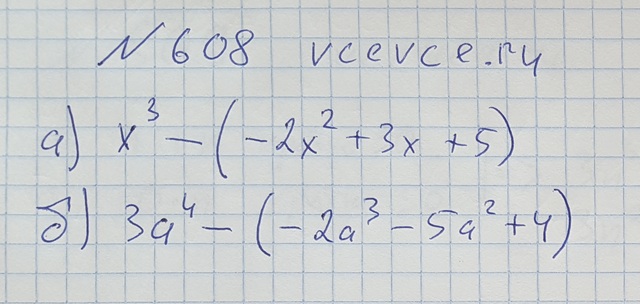 № 608 vcevce.ru
а) x³ — (-2x² + 3x + 5)
б) 3a⁴ — (-2a³ - 5a² + 4)